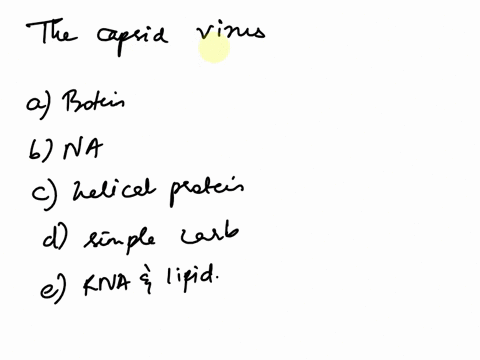 The capsid virus
a) Protein
b) NA
c) helical protein
d) simple carb
e) RNA & lipid.